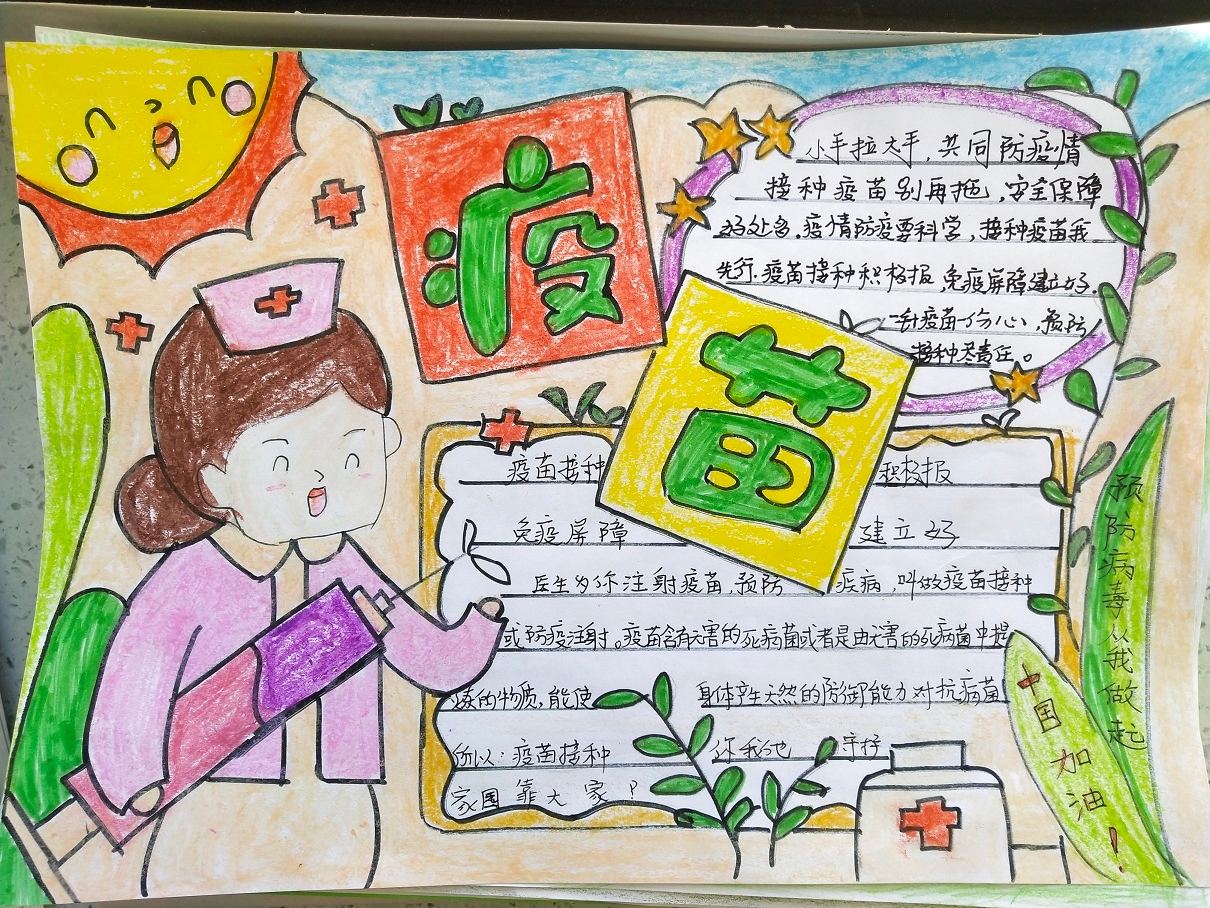 疫苗
小手拉大手，共同防疫情
接种疫苗别再拖，安全保障
好处多．疫情防疫要科学，接种疫苗我
先行．疫苗接种积极报 免疫屏障建立好．
一针疫苗一份心，预防
接种尽责任。
疫苗接种 积极报
免疫屏障 建立好
医生为你注射疫苗，预防 疾病，叫做疫苗接种
或预防注射。疫苗含有无害的死病菌或者是由无害的死病菌中提
炼的物质，能使 身体产生天然的防御能力对抗病菌
所以：疫苗接种 你我他 守护
家国 靠大家！
预防病毒从我做起
中国加油！